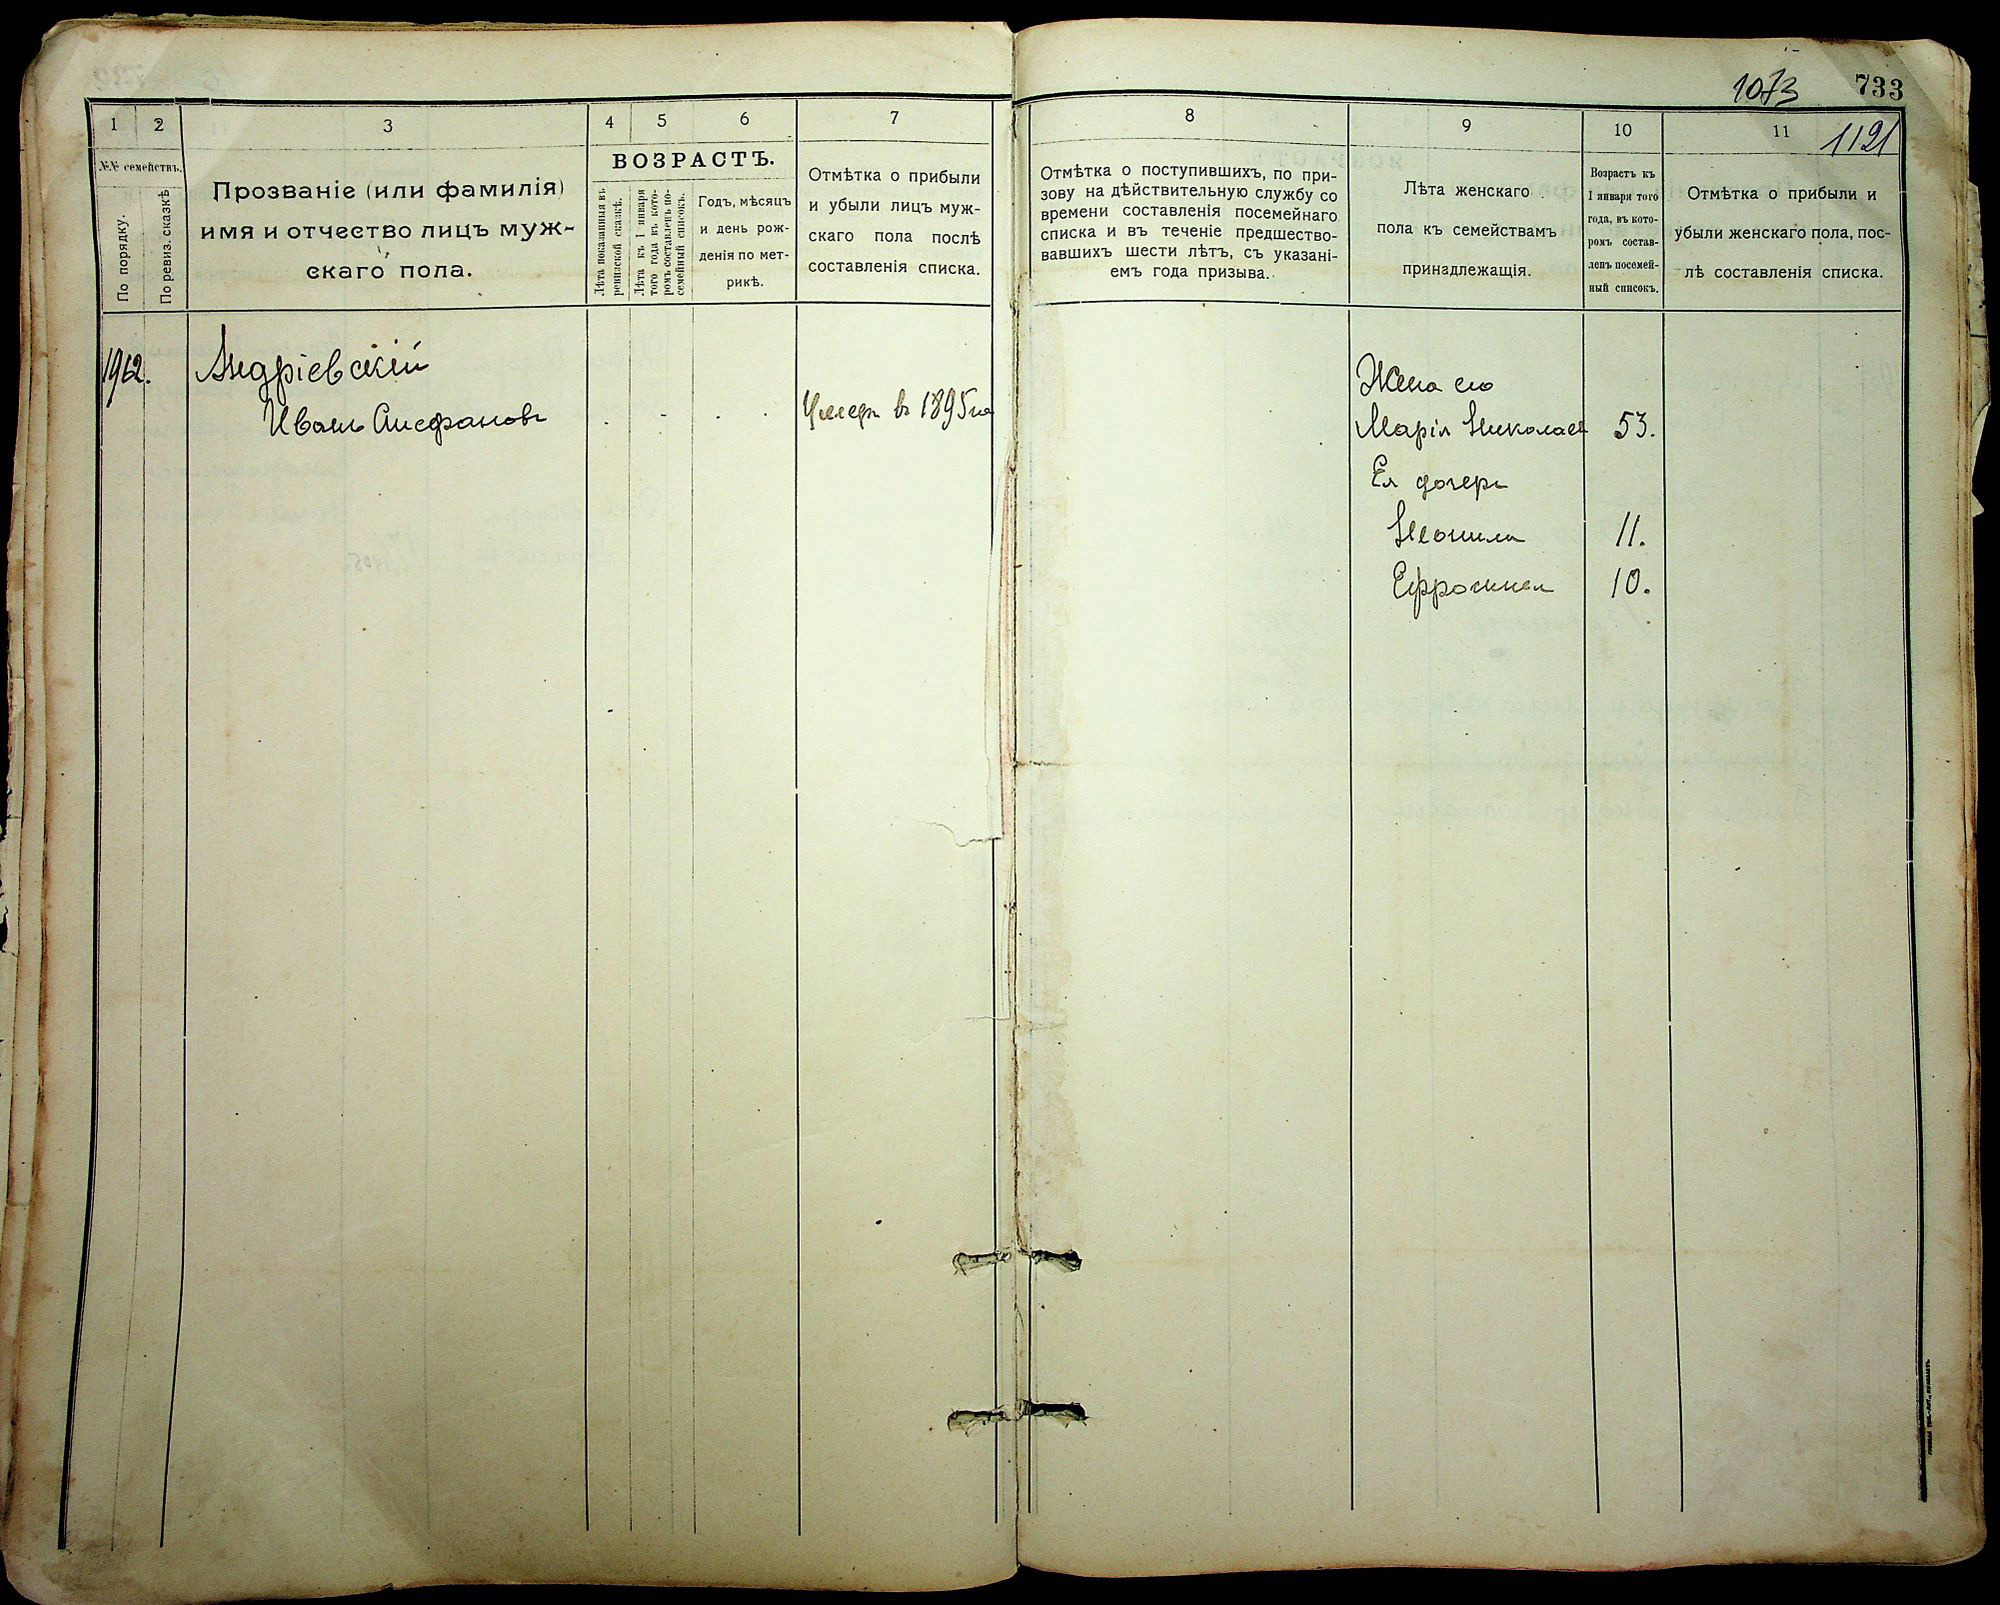 1073 733
1121
1
2
3
4
5
6
7
№№ семействъ.
По порядку.
По ревиз. сказкѣ
Прозваніе (или фамилія)
имя и отчество лицъ муж-
скаго пола.
ВОЗРАСТЪ.
Лѣта показанныя въ
ревизской сказкѣ.
Лѣта къ 1 января
того года въ кото-
ромъ составленъ по-
семейный списокъ.
Годъ, мѣсяцъ
и день рож-
денія по мет-
рикѣ.
Отмѣтка о прибыли
и убыли лицъ муж-
скаго пола послѣ
составленія списка.
1962.
Андріевскій
Иванъ
Умеръ въ 1895
8
9
10
11
Отмѣтка о поступившихъ, по при-
зову на дѣйствительную службу со
времени составленія посемейнаго
списка и въ теченіе предшество-
вавшихъ шести лѣтъ, съ указані-
емъ года призыва.
Лѣта женскаго
пола къ семействамъ
принадлежащія.
Возрастъ къ
1 января того
года, въ кото-
ромъ состав-
ленъ посемей-
ный списокъ.
Отмѣтка о прибыли и
убыли женскаго пола, пос-
лѣ составленія списка.
Жена его
Марія Николаев 53.
Ея дочери
Неонила 11.
Ефросинья 10.